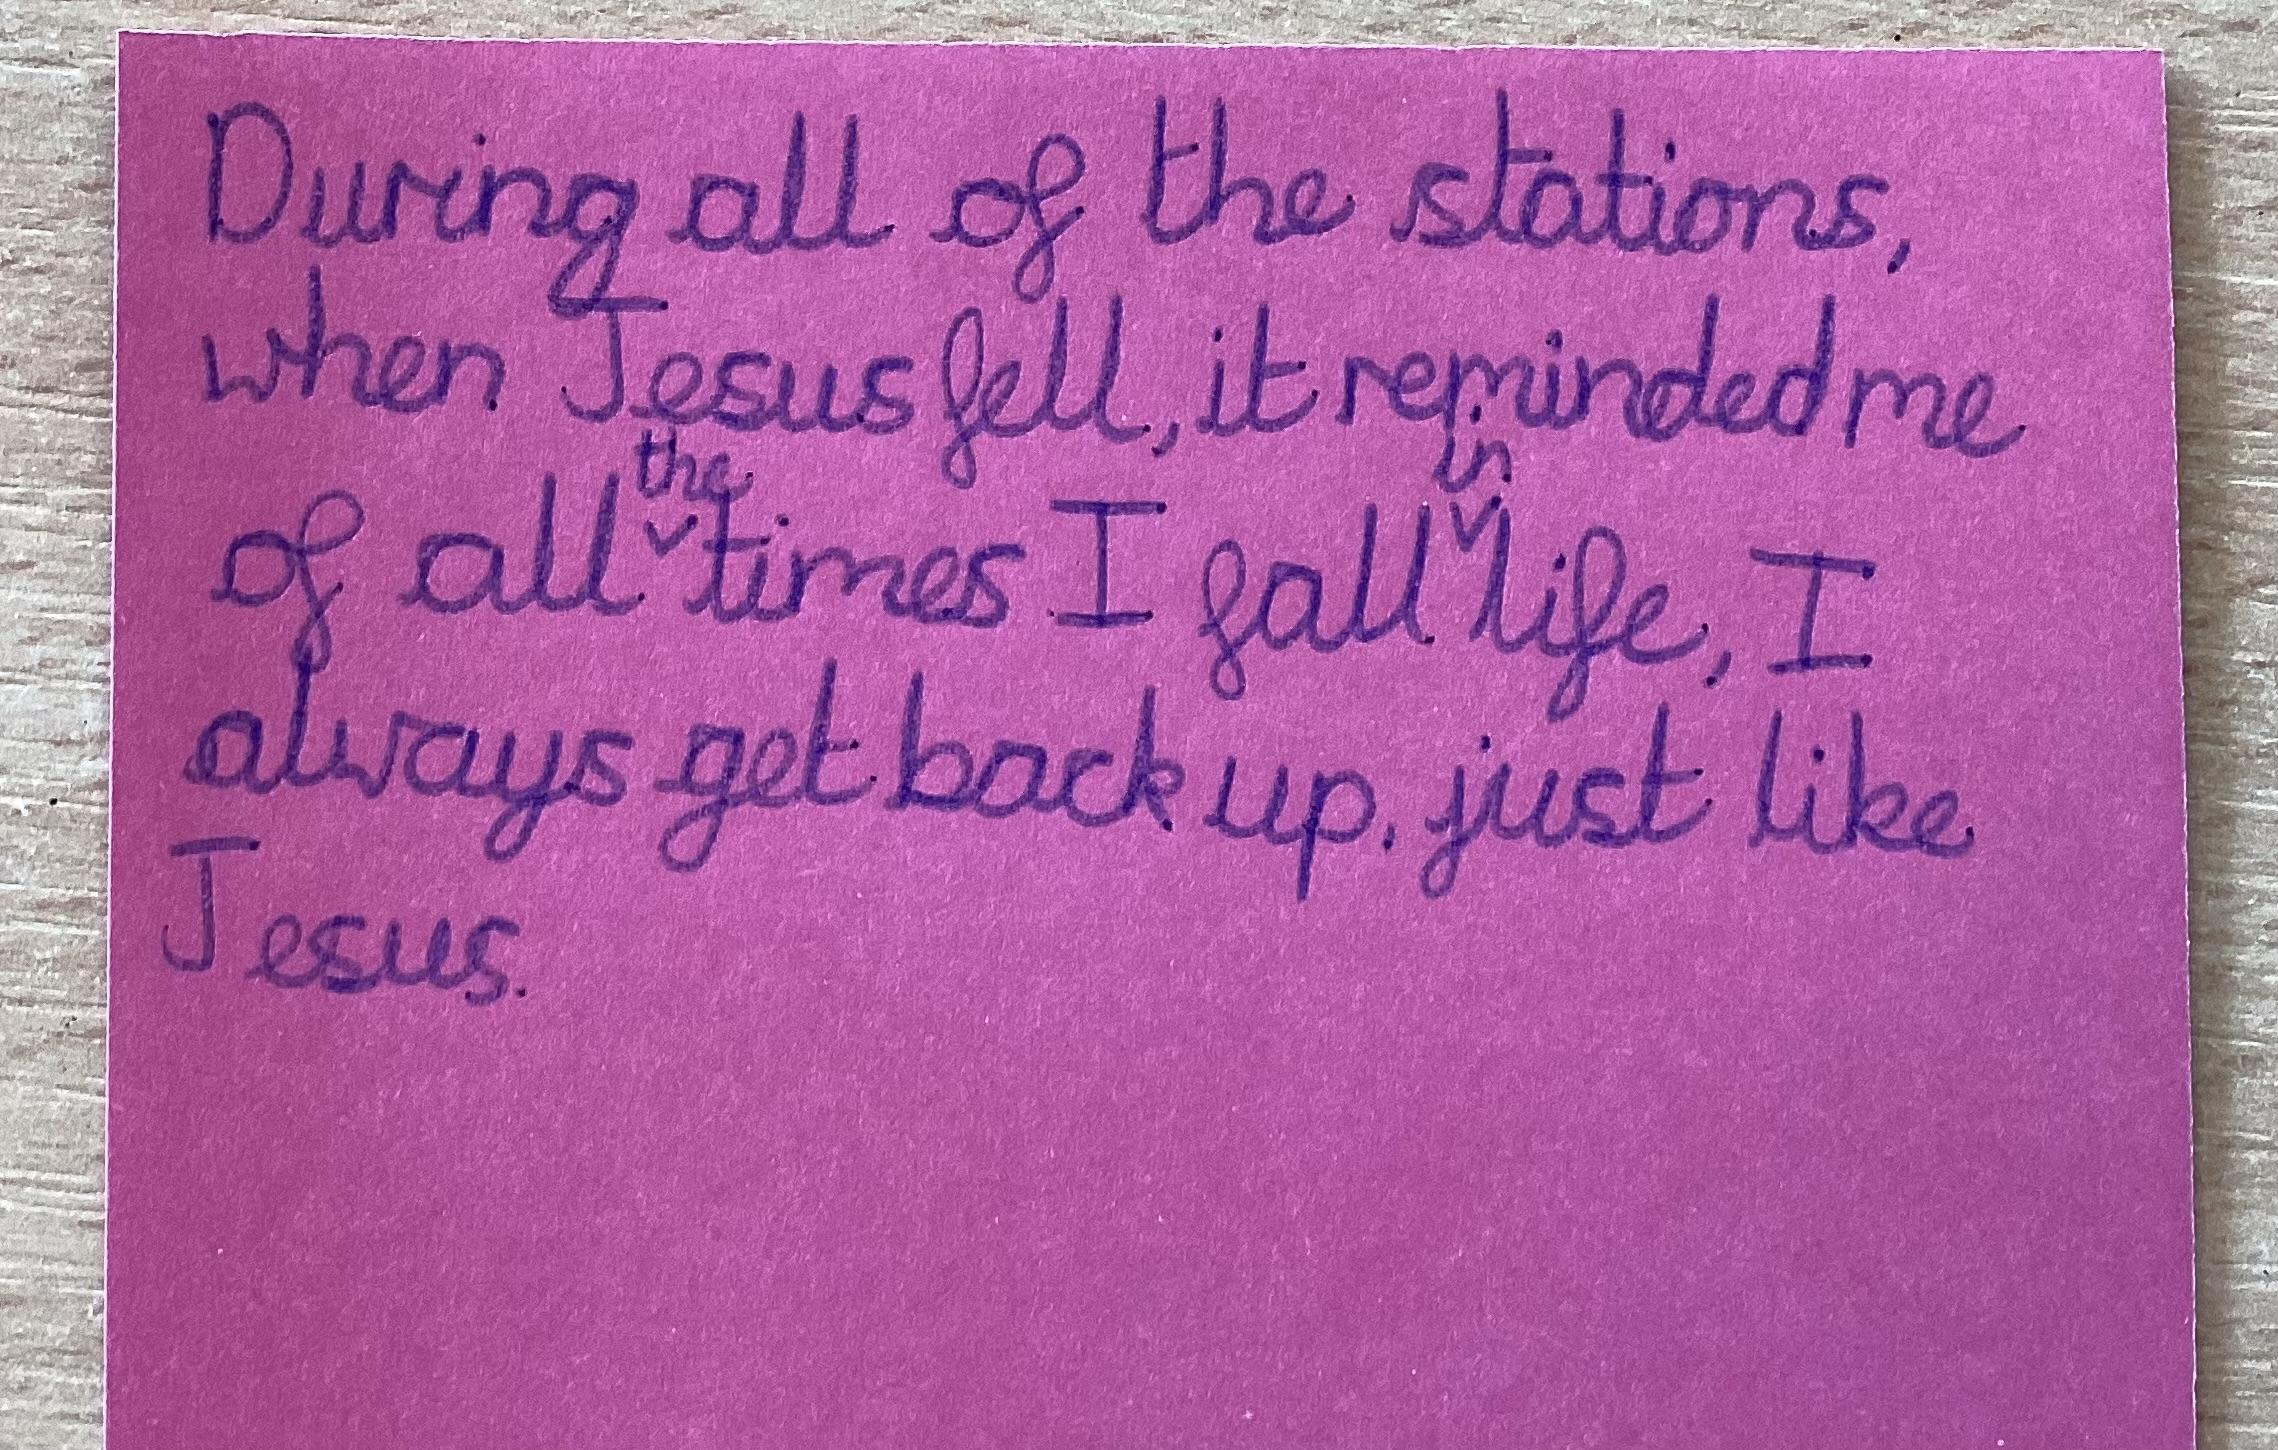 During all of the stations,
when Jesus fell, it reminded me
of all the times I fall in life, I
always get back up. just like
Jesus.